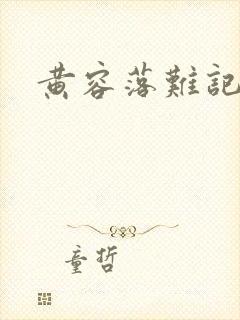 黄容落難記
童哲